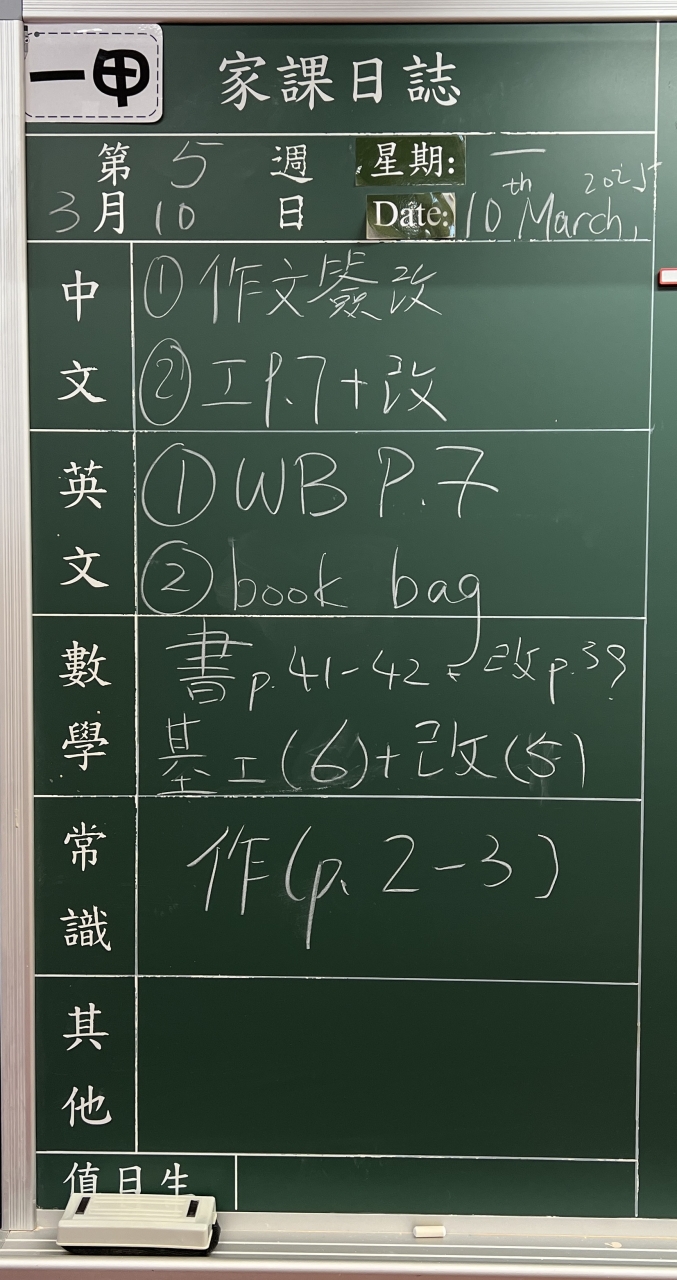 一甲 家課日誌
第 5 週 星期: 一
3月10 日 Date: 10th March, 2025
中文
①作文簽改
②工P.7+改
英文
①WB P.7
②book bag
數學
書p.41-42+改p.39
基工(6)+改(5)
常識
作(p.2-3)
其他
值日生